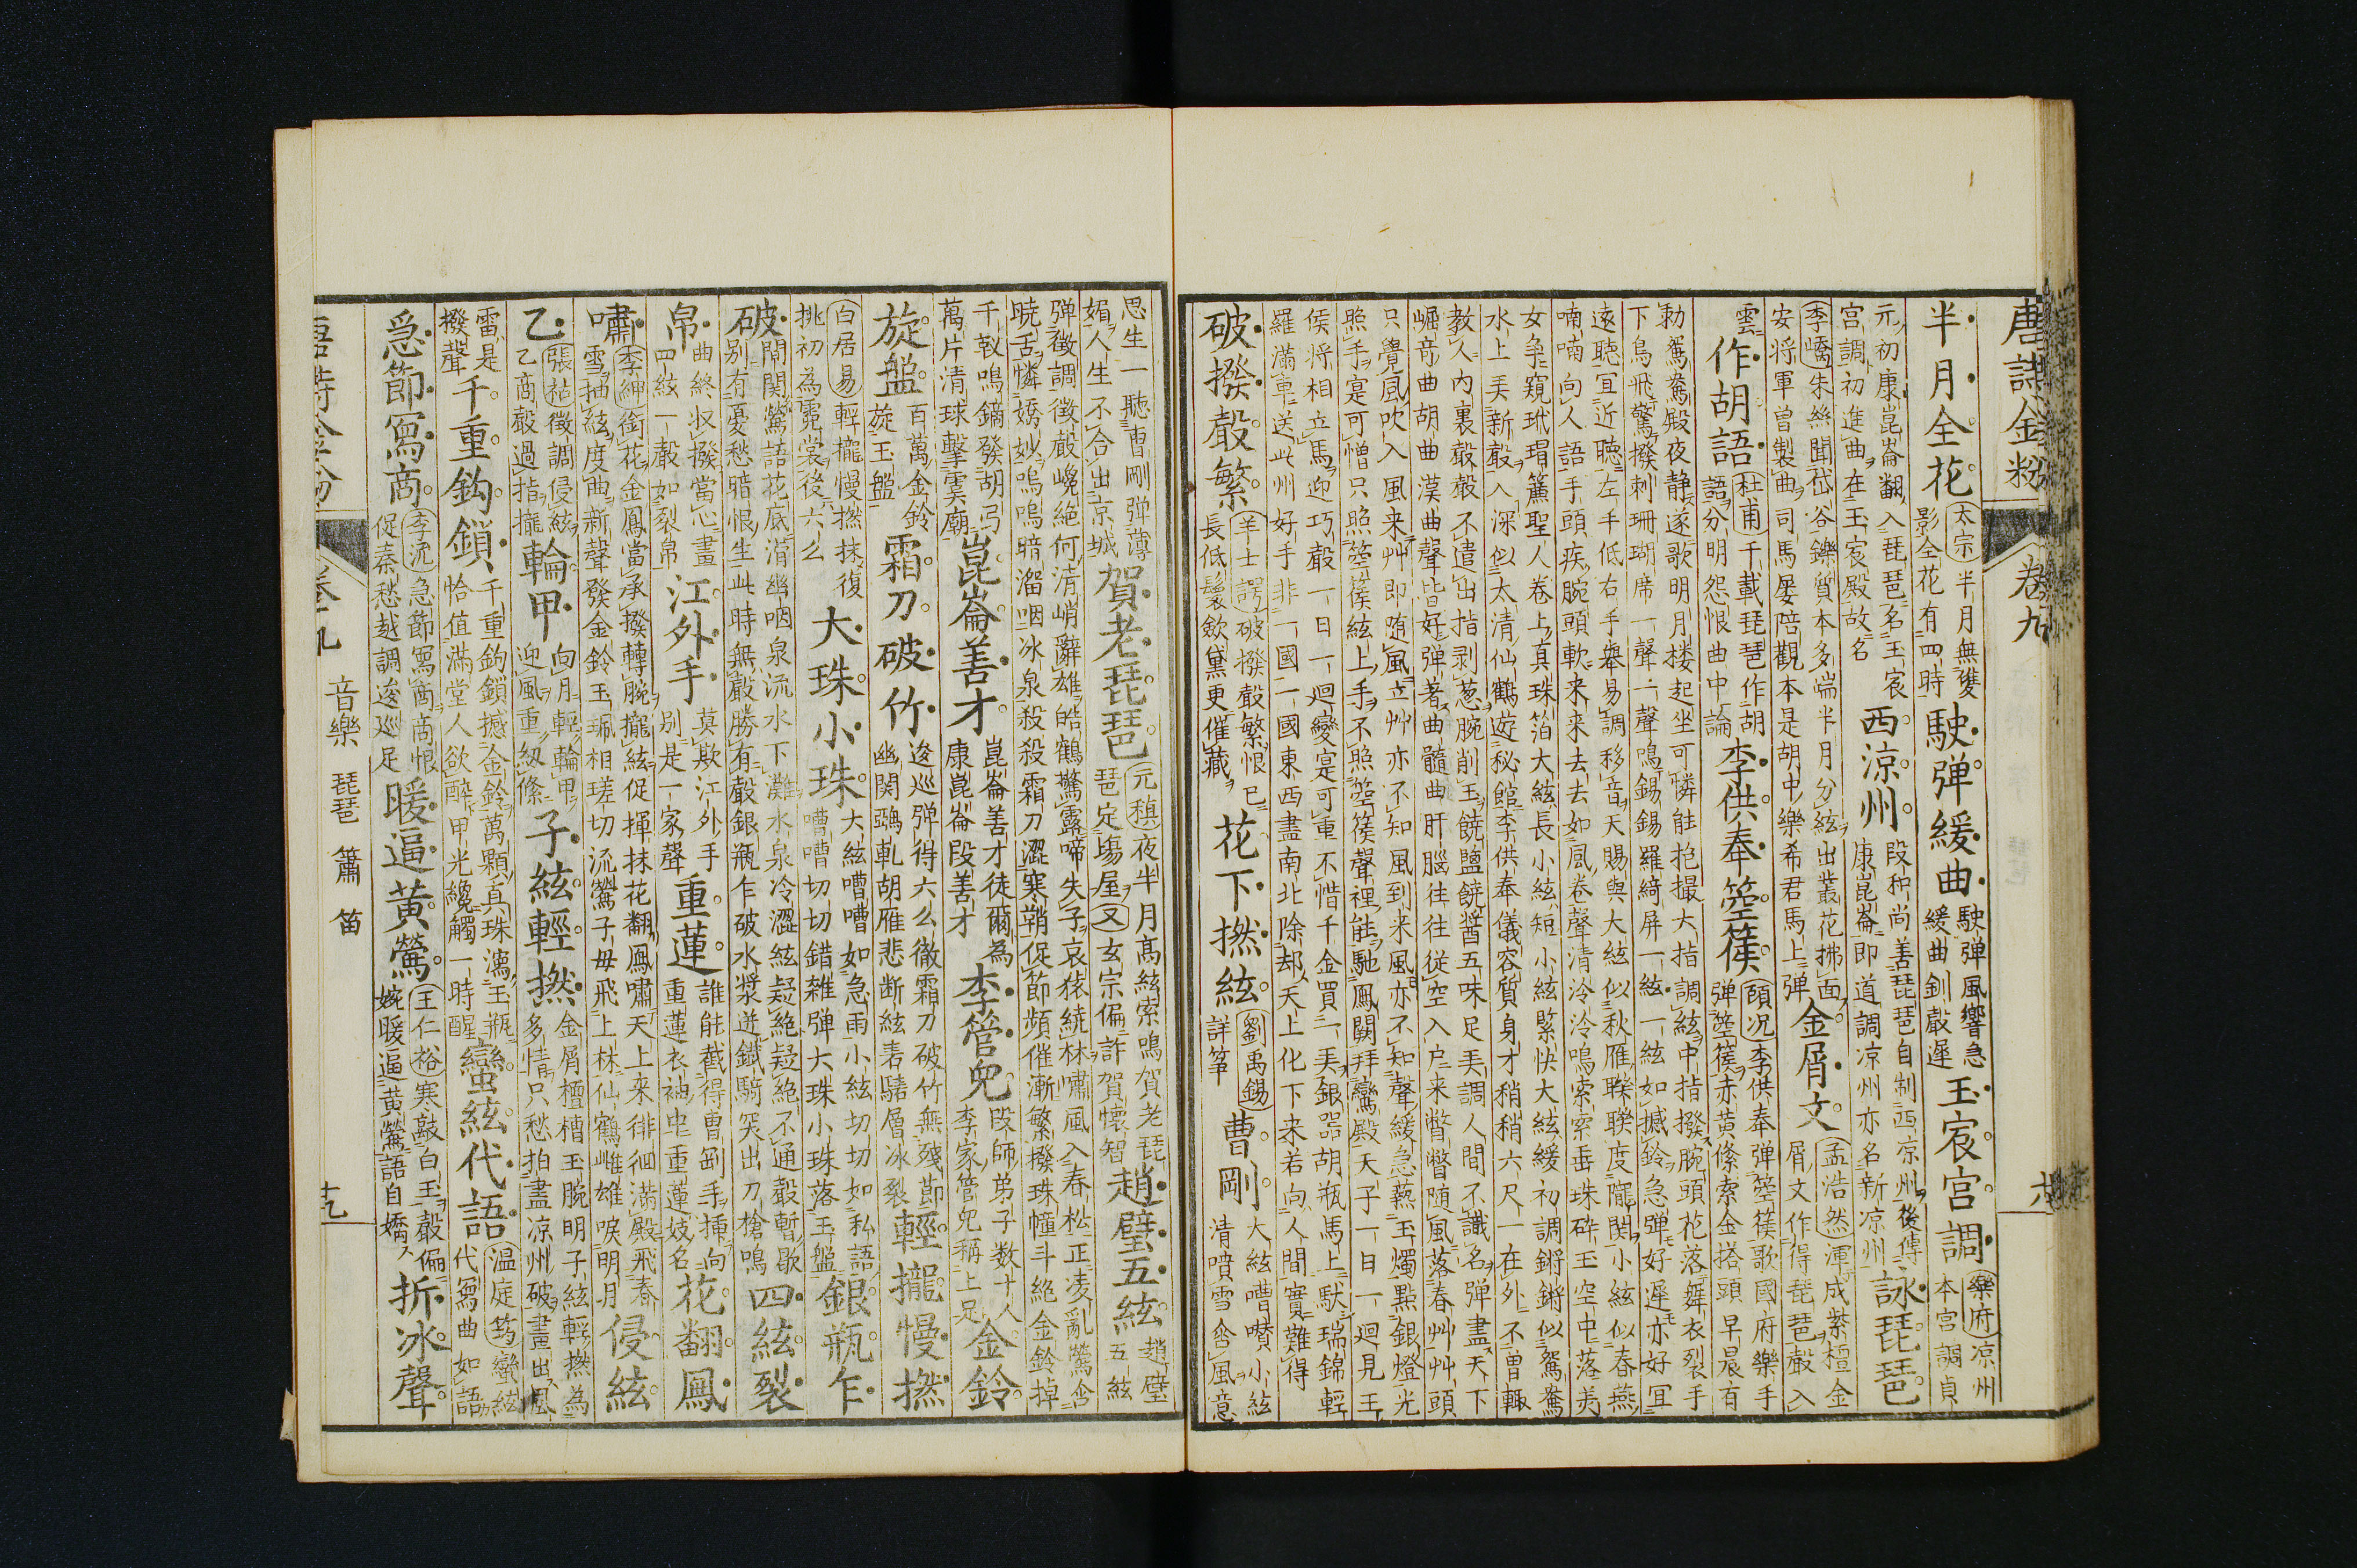 唐詩金粉 卷九 六
半月全花 太宗半月無雙影全花有四時 駛弹緩曲 駛弹風響急緩曲釧聲遲 玉宸宮調 樂府凉州本宮調貞
元初康崑崙翻入琵琶名玉宸宮調初進曲在玉宸殿故名 西凉州 段和尚善琵琶自制西凉州後傳康崑崙即道調凉州亦名新凉州 詠琵琶
李嶠朱絲聞岱谷鑠質本多端半月分絃出叢花拂面安將軍曾製曲司馬屡陪觀本是胡中樂希君馬上弹 金屑文 孟浩然渾成紫檀金屑文作得琵琶聲入
雲 作胡語 杜甫千載琵琶作胡語分明怨恨曲中論 李供奉箜篌 顾况李供奉弹箜篌歌國府樂手弹箜篌赤黄絛索金搭頭早晨有
勅鴛鴦殿夜静遂歌明月楼起坐可憐能抱撮大指調絃中指撥腕頭花落舞衣裂手
下鳥飛驚撥刺珊瑚席一聲一聲鳴錫錫羅綺屏一絃一絃如撼鈴急弹好遲亦好宜
遠聽宜近聽左手低右手舉易調移音天賜與大絃似秋雁聨聨度隴関小絃似春燕
喃喃向人語手頭疾腕頭軟来来去去如風卷聲清泠泠鳴索索垂珠碎玉空中落美
女争窺玳瑁簾聖人卷上真珠箔大絃長小絃短小絃緊快大絃緩初調鏘鏘似鴛鴦
水上美新聲入深似太清仙鶴遊秘館李供奉儀容質身才稍稍六尺一在外不曾輙
教人内裏聲聲不遣出指剥葱腕削玉饒鹽饒醤五味足美調人間不識名弹盡天下
崛竒曲胡曲漢曲聲皆好弹著曲髓曲肝腦往往從空入户来瞥瞥随風落春艸艸頭
只覺風吹入風来艸即随風立艸亦不知風到来風亦不知聲緩急蓺玉燭點銀燈光
照手寔可憎只照箜篌絃上手不照箜篌聲裡能馳鳳闕拜鸞殿天子一日一迴見王
侯將相立馬迎巧聲一日一迴變寔可重不惜千金買一美銀器胡瓶馬上馱瑞錦輕
羅滿車送此州好手非一國一國東西盡南北除却天上化下来若向人間實難得
破撥聲繁 羊士諤破撥聲繁恨已長低鬟斂黛更催藏 花下撚絃 劉禹錫詳筝 曹剛 大絃嘈囋小絃清噴雪含風意
思生一聽曹剛弹薄媚人生不合出京城 賀老琵琶 元稹夜半月高絃索鳴賀老琵琶定塲屋又玄宗偏許賀懷智 趙璧五絃 趙璧五絃
弹徵調徵聲巉絶何清峭辭雄皓鶴驚露啼失子哀猿繞林嘯風入春松正凌亂鶯含
曉舌憐嬌妙嗚嗚暗溜咽冰泉殺殺霜刀澀寒鞘促節頻催漸繁撥珠幢斗絶金鈴掉
千靫鳴鏑發胡弓萬片清球擊虞廟 崑崙善才 崑崙善才徒爾為康崑崙段善才 李管兒 段師弟子数十人李家管兒稱上足 金鈴
旋盤 百萬金鈴旋玉盤 霜刀破竹 逡巡弹得六么徹霜刀破竹無殘節幽関鵶軋胡雁悲断絃砉騞層冰裂 輕攏慢撚
白居易輕攏慢撚抹復挑初為霓裳後六么 大珠小珠 大絃嘈嘈如急雨小絃切切如私語嘈嘈切切錯雜弹大珠小珠落玉盤 銀瓶乍
破 間関鶯語花底滑幽咽泉流水下灘水泉冷澀絃疑絶疑絶不通聲暫歇别有憂愁暗恨生此時無聲勝有聲銀瓶乍破水漿迸鐵騎突出刀槍鳴 四絃裂
帛 曲終収撥當心畫四絃一聲如裂帛 江外手 莫欺江外手别是一家聲 重蓮 誰能截得曹剛手挿向重蓮衣袖中重蓮妓名 花翻鳳
嘯 李紳銜花金鳳當承撥轉腕攏絃促揮抹花翻鳳嘯天上来徘徊滿殿飛春雪抽絃度曲新聲發金鈴玉珮相瑳切流鶯子母飛上林仙鶴雌雄唳明月 侵絃
乙 張祜徵調侵絃乙商聲過指攏 輪甲 向月輕輪甲迎風重紉絛 子絃輕撚 金屑檀槽玉腕明子絃輕撚為多情只愁拍盡凉州破畫出風
雷是撥聲 千重鈎鎖 千重鈎鎖撼金鈴萬顆真珠瀉玉瓶恰值滿堂人欲醉甲光纔觸一時醒 蠻絃代語 温庭筠蠻絃代寫曲如語
急節寫商 李沇急節寫商商恨促秦愁越調逡巡足 暖逼黄鶯 王仁裕寒敲白玉聲偏婉暖逼黄鶯語自嬌 折冰聲
唐詩金粉 卷九 音樂 琵琶 簫 笛